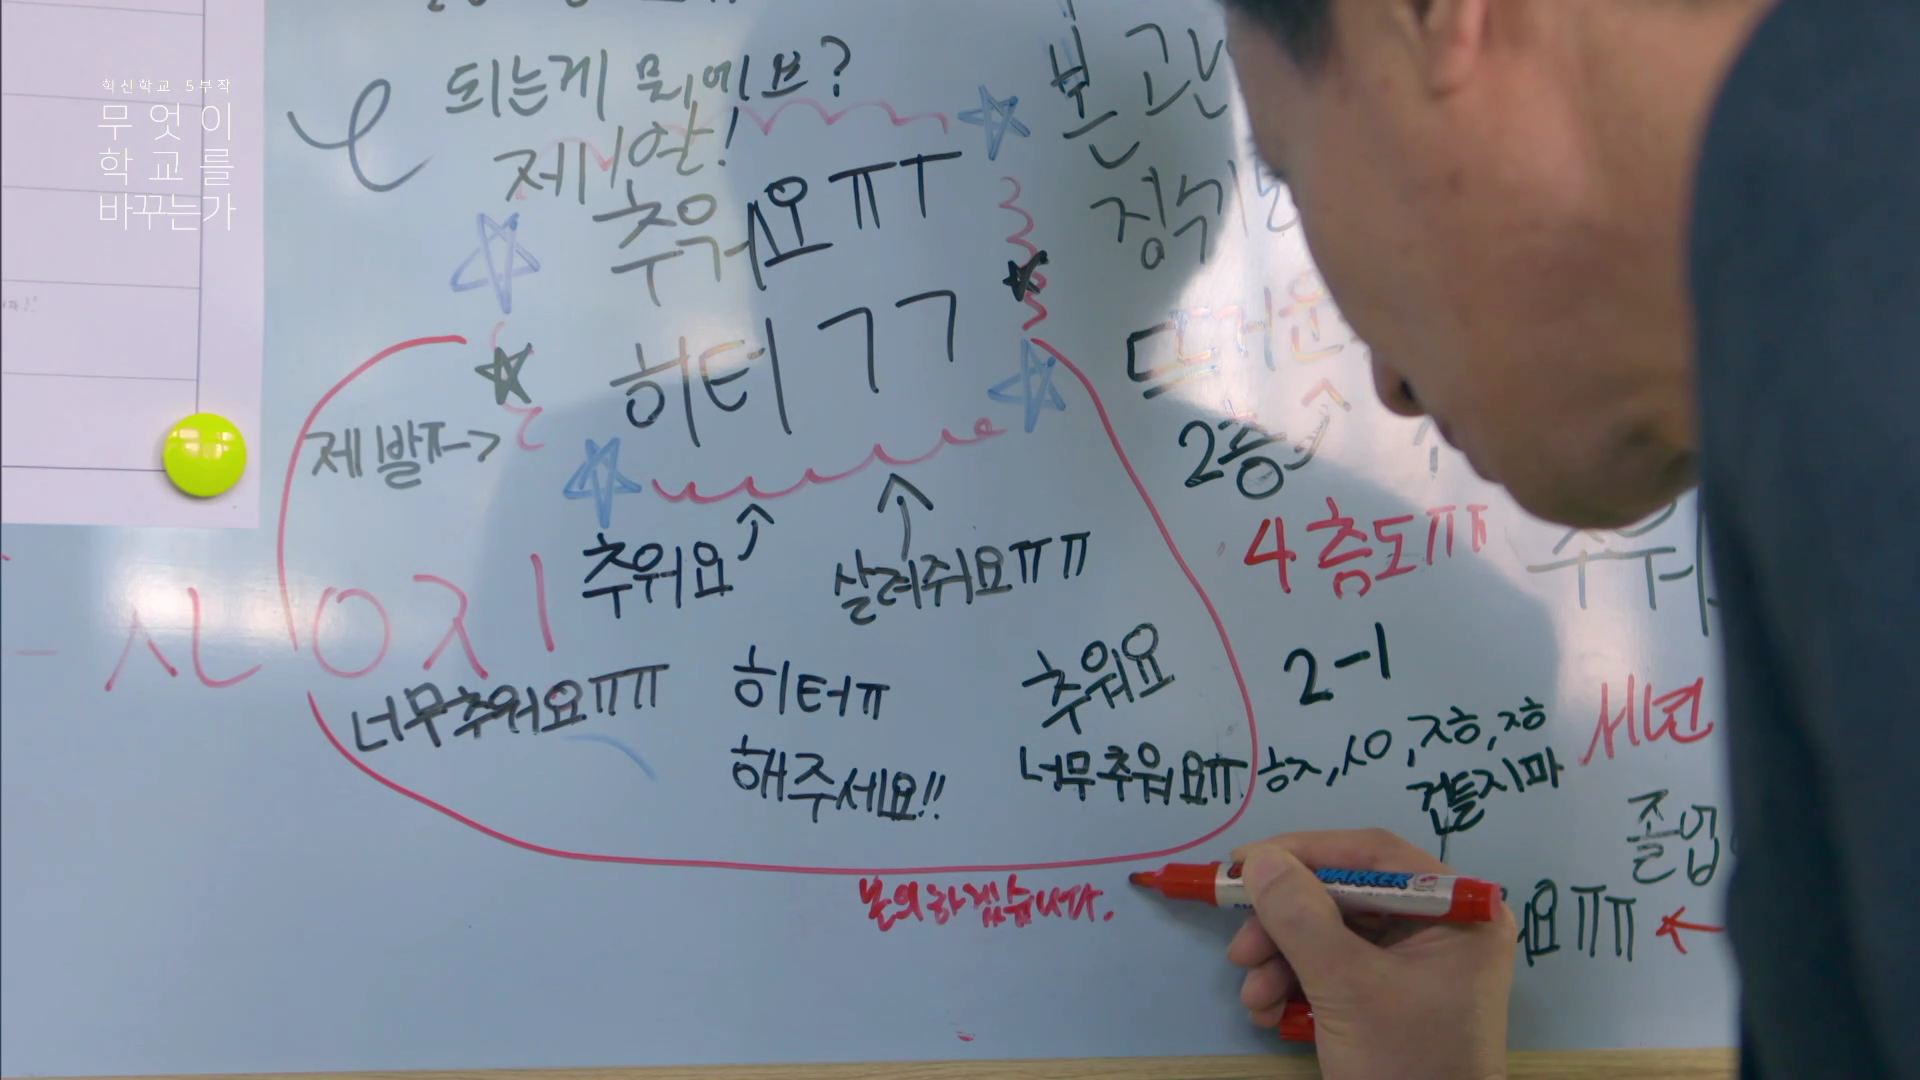 혁신학교 5부작
무엇이
학교를
바꾸는가
되는게 뭐에요?
제안!
추워요ㅠㅜ
히터ㄱㄱ
제발ㅠ->
추워요
살려줘요ㅠㅠ
너무추워요ㅠㅠ
히터ㅠ
해주세요!!
추워요
너무추워요ㅠ
본관
2층
4층도ㅠㅠ
2-1
ㅎㅈ,ㅅㅇ,ㅈㅎ,ㅈㅎ
건들지마
졸업
요ㅠㅠ
MARKER